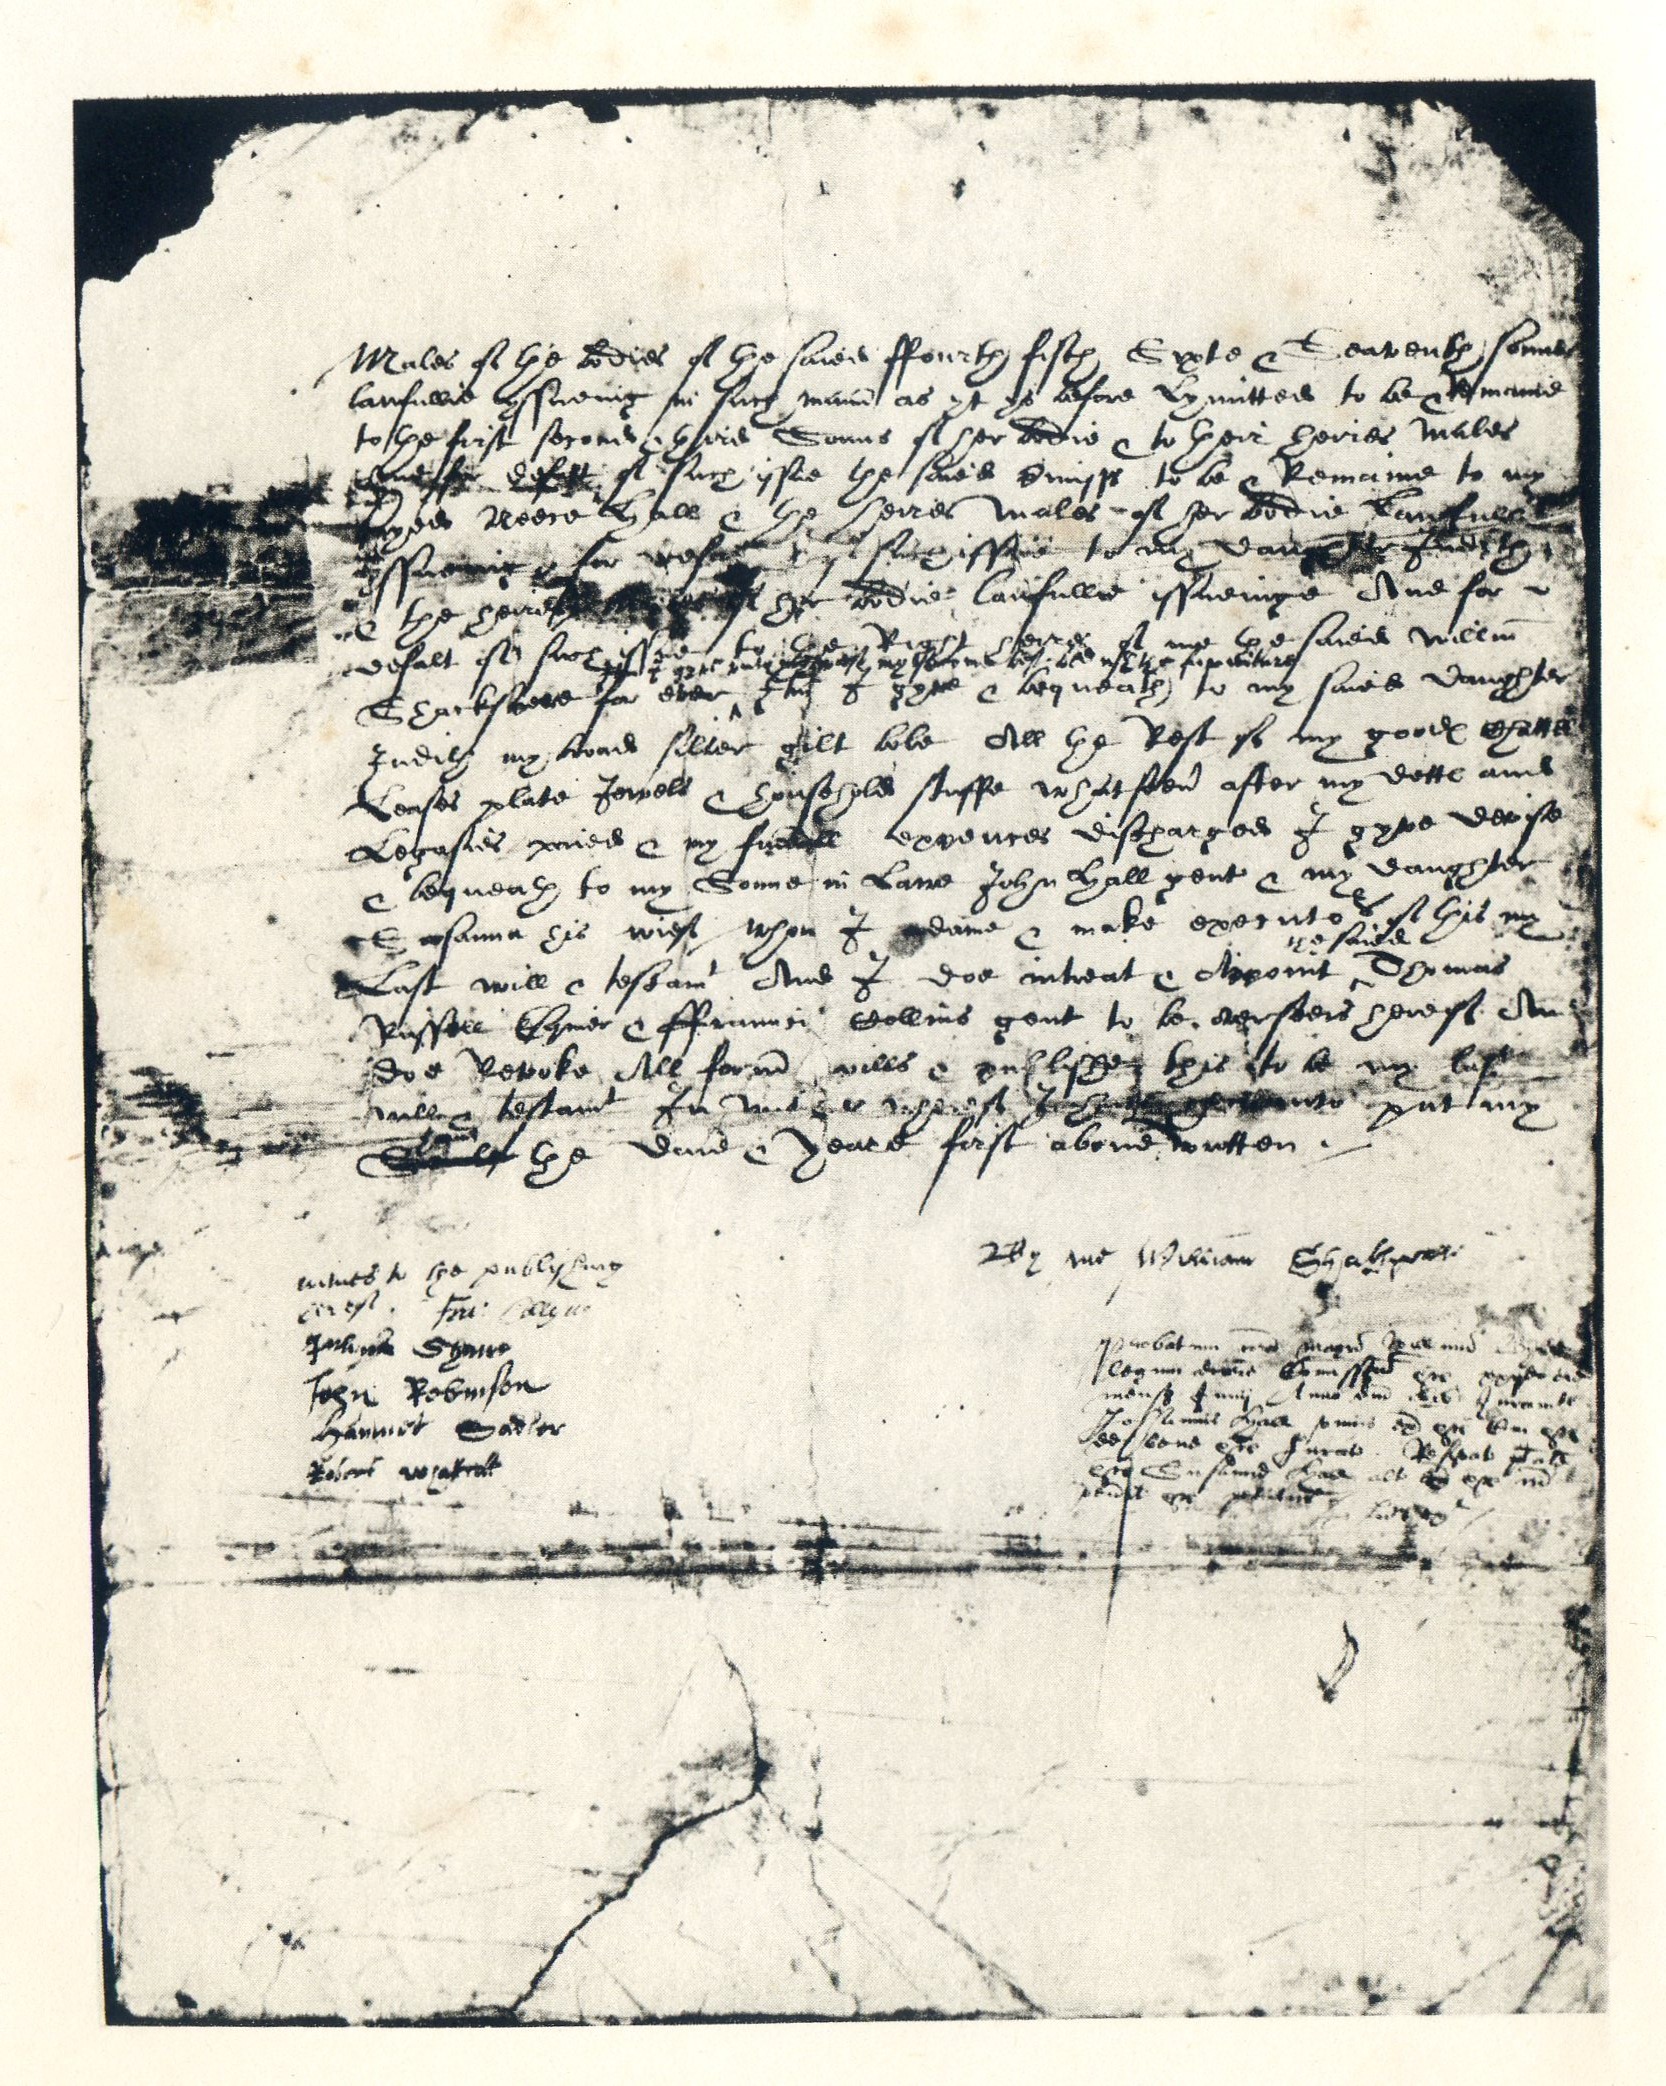 Males of the bodies of the saied ffourth fifth Sixte & Seaventh sonnes
lawfullie yssueing in such mann as yt ys before Lymitted to be & Remaine
to the first second & third Sonns of her bodie & to their heires Males
And for defalt of such issue the saied premisss to be & Remaine to my
sayed Neece Hall & the heires Males of her bodie Lawfullie
yssueing & for defalt of such issue to my daughter Judith
& the heires Males of her bodie lawfullie issueinge And for
defalt of such issue to the Right heires of me the saied willm
Itm I gyve unto my wief my second best bed wth the furniture
Shackspere for ever Itm I gyve & bequeath to my saied daughter
Judith my broad silver gilt bole All the Rest of my goods Chattels
Leases plate Jewels & household stuffe whatsoevr after my dettes and
Legasies paied & my funerall expences discharged I gyve devise
& bequeath to my Sonne in Lawe John Hall gent & my daughter
Susanna his wief whom I ordaine & make executors of this my
Last will & testamt And I doe intreat & Appoint the saied Thomas
Russell Esquier & ffrauncis Collins gent to be overseers hereof And
doe Revoke All formr wills & publishe this to be my last
will & testamt In witnes whereof I have hereunto put my
hand
Seale the daie & Yeare first above written
witnes to the publyshing
hereof Fra: Collyns
Julyus Shawe
John Robinson
Hamnet Sadler
Robert whattcott
By me William Shakspeare